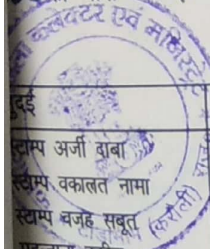 कलेक्टर एवं मजिस्ट्रेट
मुद्दई
स्टाम्प अर्जी दावा
स्टाम्प वकालत नामा
स्टाम्प वजह सबूत
(करौली)